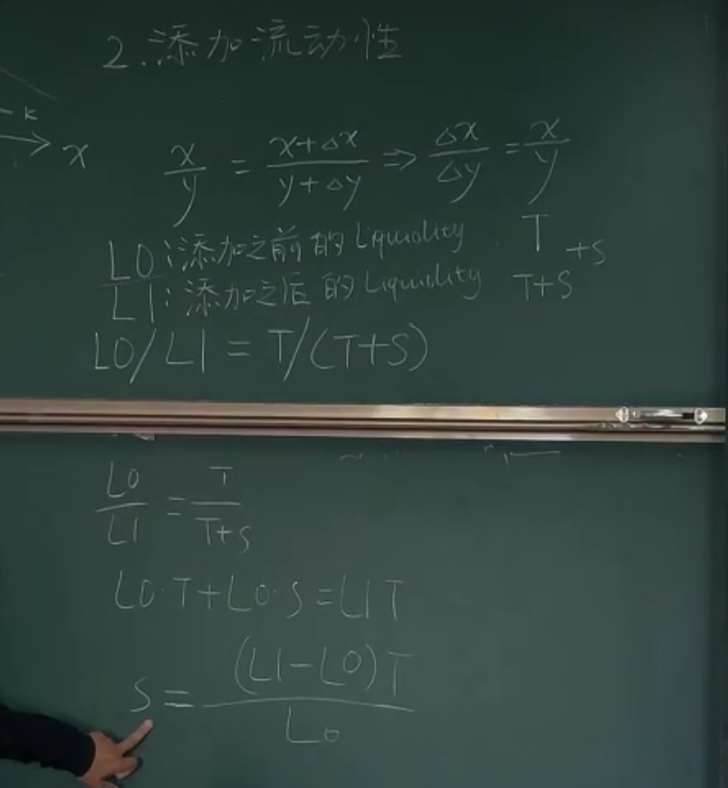 2.添加流动性
-k
x
x/y = (x+Δx)/(y+Δy) ⇒ Δx/Δy = x/y
L0:添加之前的Liquidity T +S
L1:添加之后的Liquidity T+S
L0/L1=T/(T+S)
L0/L1 = T/(T+S)
L0·T+L0·S=L1T
S=(L1-L0)T/L0